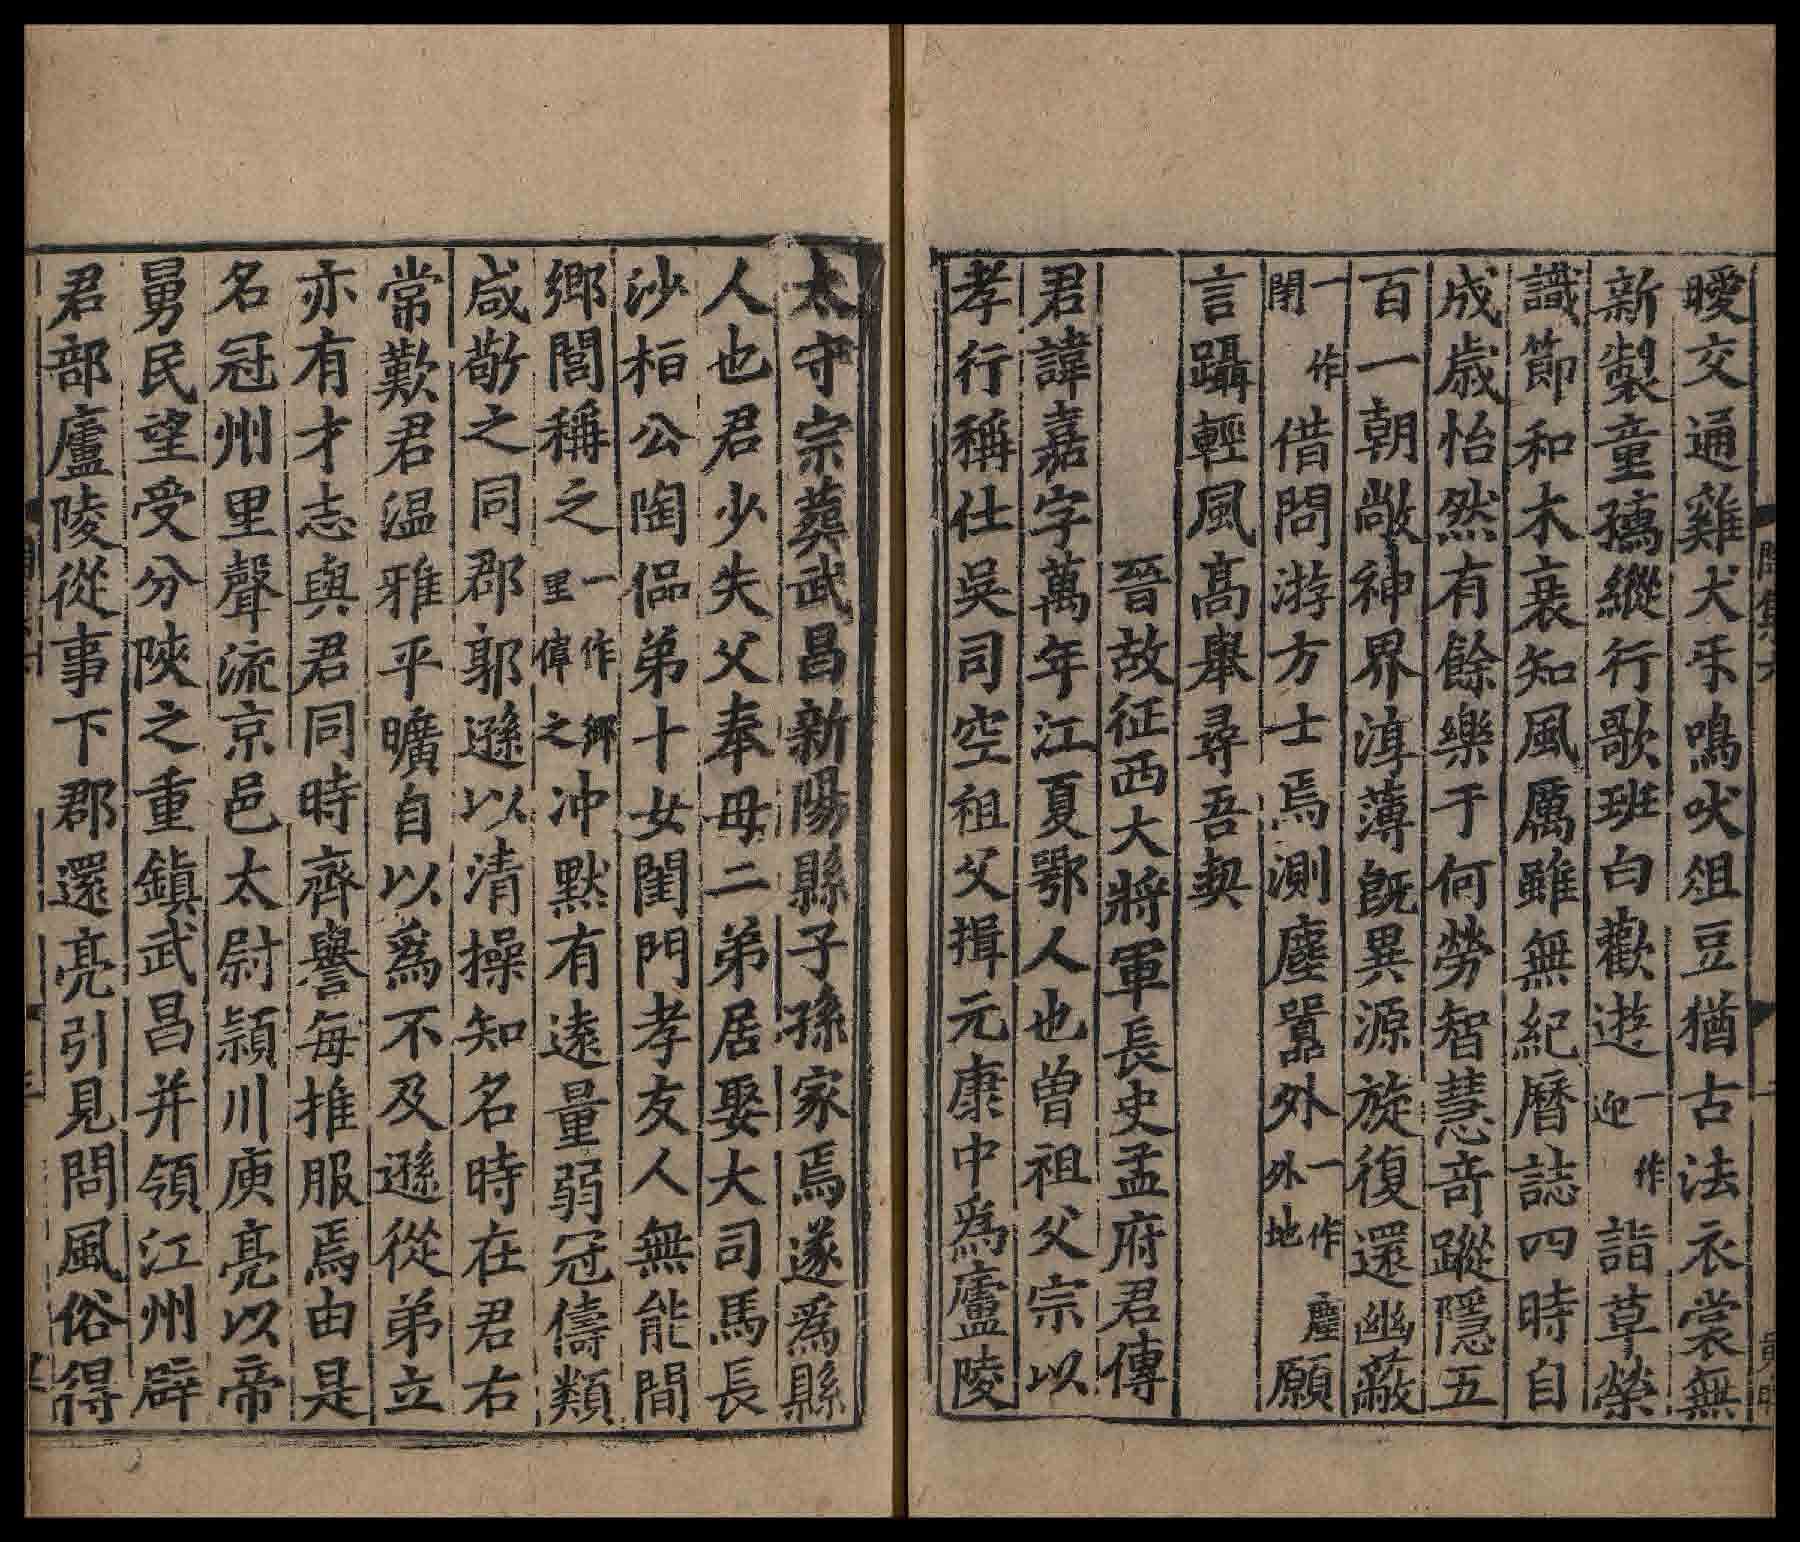 曖交通雞犬乐鳴吠俎豆猶古法衣裳無
新製童孺縱行歌班白歡遊一作迎詣草榮
識節和木衰知風厲雖無紀曆誌四時自
成歲怡然有餘樂于何勞智慧竒蹤隱五
百一朝敞神界淳薄旣異源旋復還幽蔽
一作閉借問游方士焉測塵囂外一作塵外地願
言躡輕風髙舉尋吾契
晉故征西大將軍長史孟府君傳
君諱嘉字萬年江夏鄂人也曾祖父宗以
孝行稱仕吳司空祖父揖元康中爲廬陵
太守宗葬武昌新陽縣子孫家焉遂爲縣
人也君少失父奉母二弟居娶大司馬長
沙桓公陶侃弟十女閨門孝友人無能間
鄉閭稱之一作鄉里偉之冲默有逺量弱冠儔類
咸敬之同郡郭遜以清操知名時在君右
常歎君温雅平曠自以爲不及遜從弟立
亦有才志與君同時齊譽每推服焉由是
名冠州里聲流京邑太尉潁川庾亮以帝
舅民望受分陝之重鎮武昌并領江州辟
君部廬陵從事下郡還亮引見問風俗得